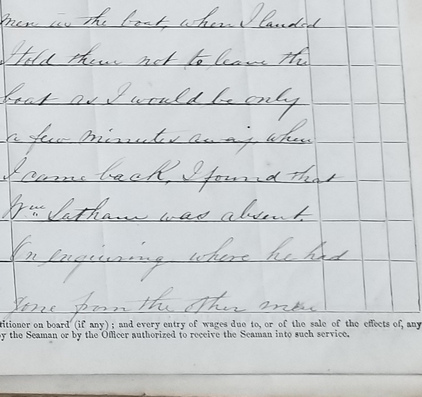 men in the boat, when I landed
I told them not to leave the
boat as I would be only
a few minutes away, when
I came back, I found that
Wm. Latham was absent.
On enquiring where he had
gone from the other men
titioner on board (if any); and every entry of wages due to, or of the sale of the effects of, any
by the Seaman or by the Officer authorized to receive the Seaman into such service.